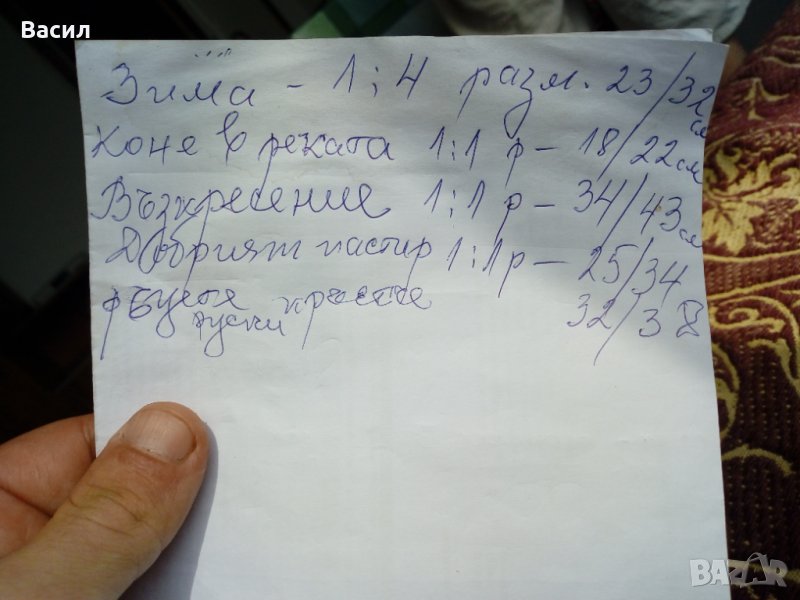 Васил
Зима - 1:4 разм. 23/32 см
Коне в реката 1:1 р - 18/22 см
Възкресение 1:1 р - 34/43 см
Добрият пастир 1:1 р - 25/34
руски кръстче 32/38
BAZAR